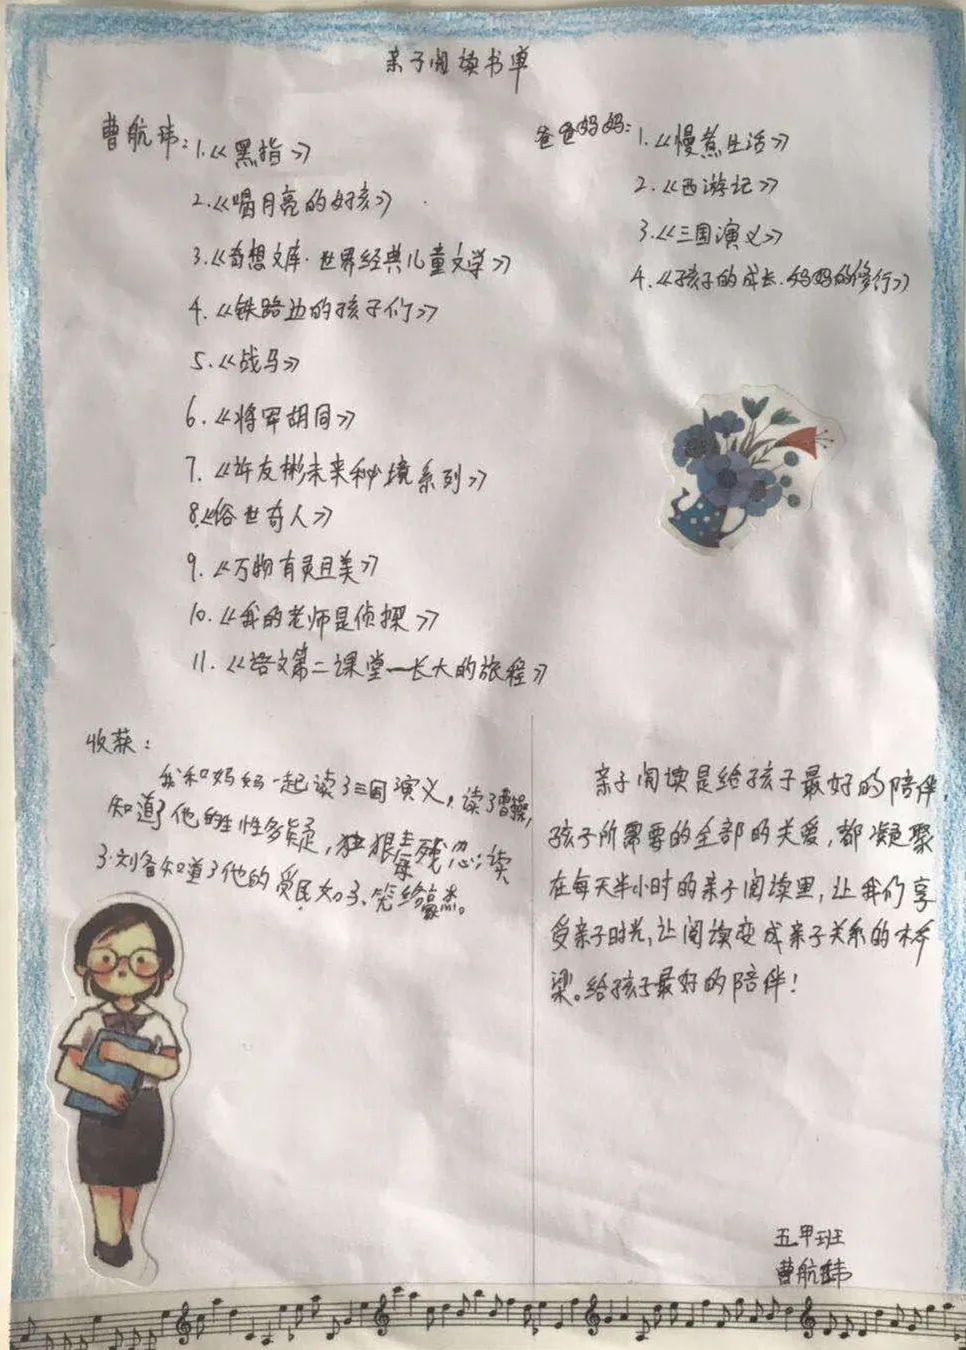 亲子阅读书单
曹航玮:
1.《黑指》
2.《喝月亮的女孩》
3.《奇想文库·世界经典儿童文学》
4.《铁路边的孩子们》
5.《战马》
6.《将军胡同》
7.《许友彬未来秘境系列》
8.《俗世奇人》
9.《万物有灵且美》
10.《我的老师是侦探》
11.《语文第二课堂—长大的旅程》
爸爸妈妈:
1.《慢煮生活》
2.《西游记》
3.《三国演义》
4.《孩子的成长.妈妈的修行》
收获:
我和妈妈一起读了三国演义,读了曹操,
知道了他的生性多疑,狠毒残忍;读
了刘备知道了他的爱民如子、
亲子阅读是给孩子最好的陪伴,
孩子所需要的全部的关爱,都凝聚
在每天半小时的亲子阅读里,让我们享
受亲子时光,让阅读变成亲子关系的桥
梁。给孩子最好的陪伴!
五甲班
曹航玮